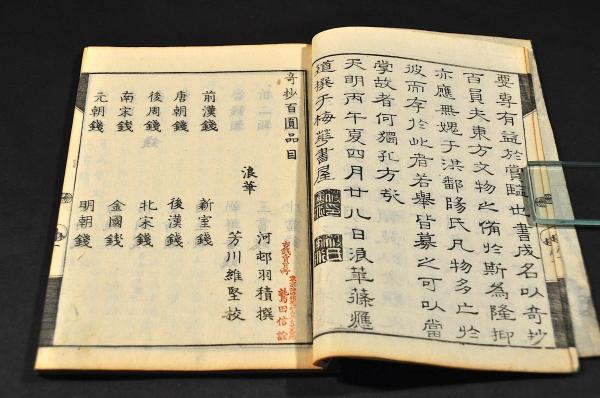 要専有益於賞臨也書成名以奇抄
百員夫東方文物之備於斯為隆抑
亦應無媿于洪鄱陽氏凡物多亡於
彼而存於此者若舉皆募之可以當
學故者何獨孔方哉
天明丙午夏四月廿八日浪華藤應
道撰于梅華書屋
奇抄百圓品目
浪華 河邨羽積撰
芳川維堅挍
前漢錢 新室錢
唐朝錢 後漢錢
後周錢 北宋錢
南宋錢 金國錢
元朝錢 明朝錢